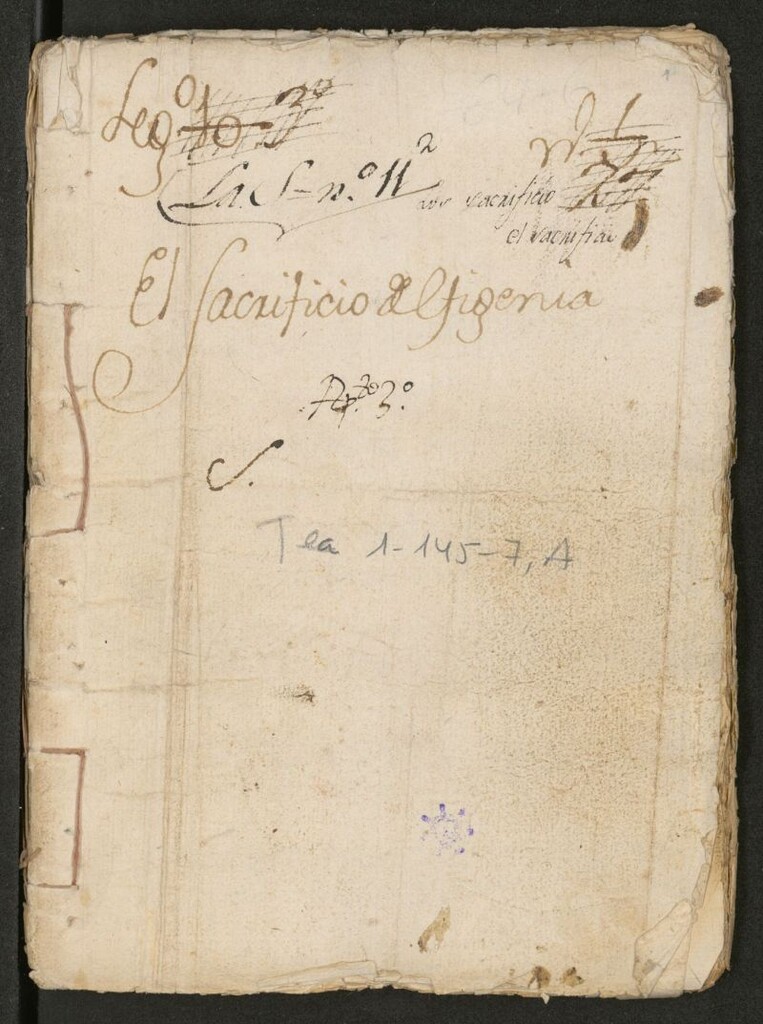 Leg.º
La. S– n.º 11 2
sacrificio
el sacrificio
El Sacrificio de Efigenia
Ap.to 3.º
S.
Tea 1-145-7, A
1